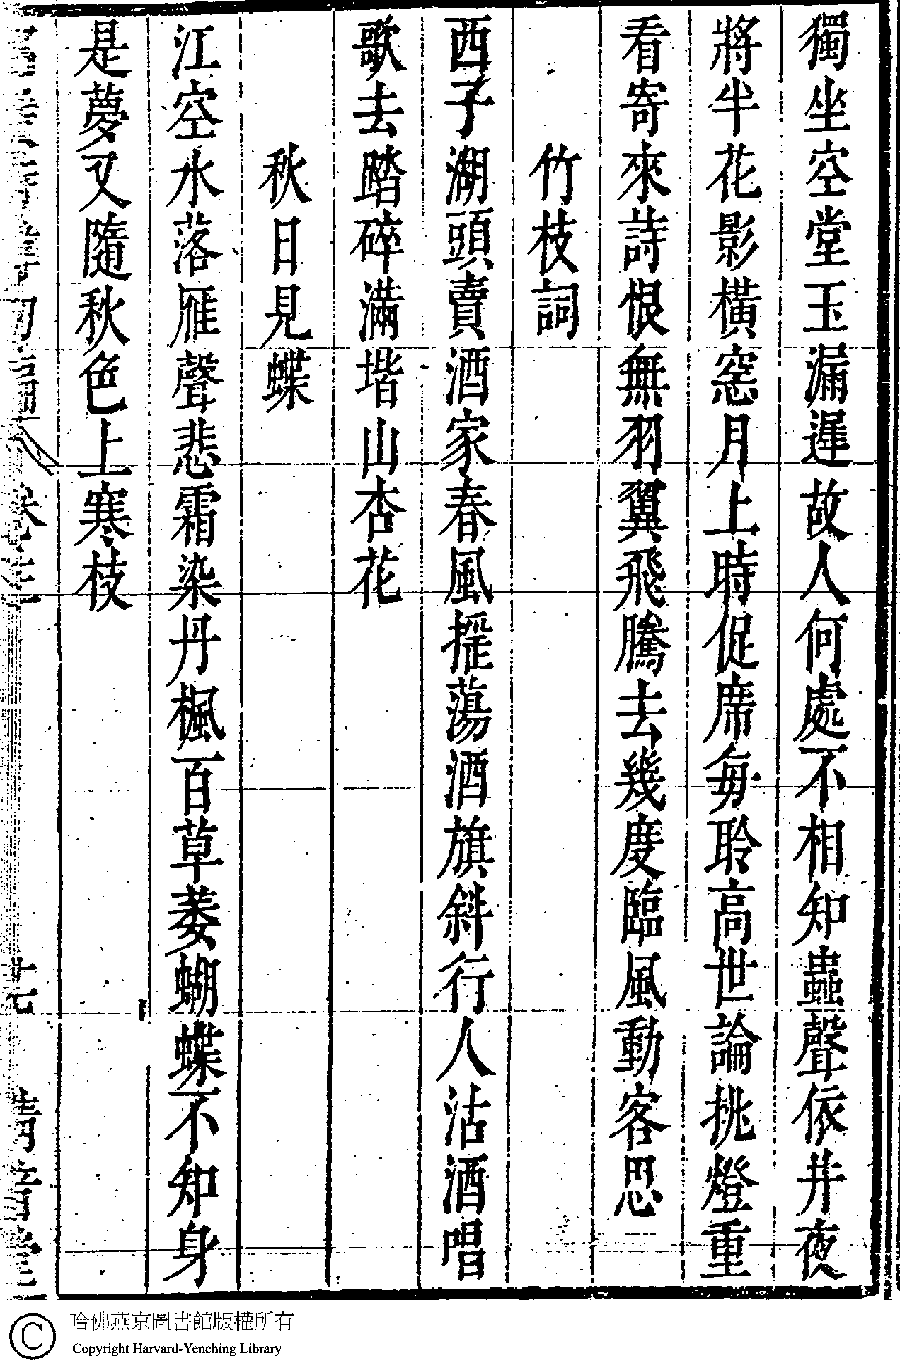 獨坐空堂玉漏遲故人何處不相知蟲聲依井夜
將半花影橫窓月上時促席每聆高世論挑燈重
看寄來詩恨無羽翼飛騰去幾度臨風動客思
竹枝詞
西子湖頭賣酒家春風搖蕩酒旗斜行人沽酒唱
歌去踏碎滿堦山杏花
秋日見蝶
江空水落雁聲悲霜染丹楓百草萎蝴蝶不知身
是夢又隨秋色上寒枝
初編 卷三 清音堂
哈佛燕京圖書館版權所有
Copyright Harvard-Yenching Library